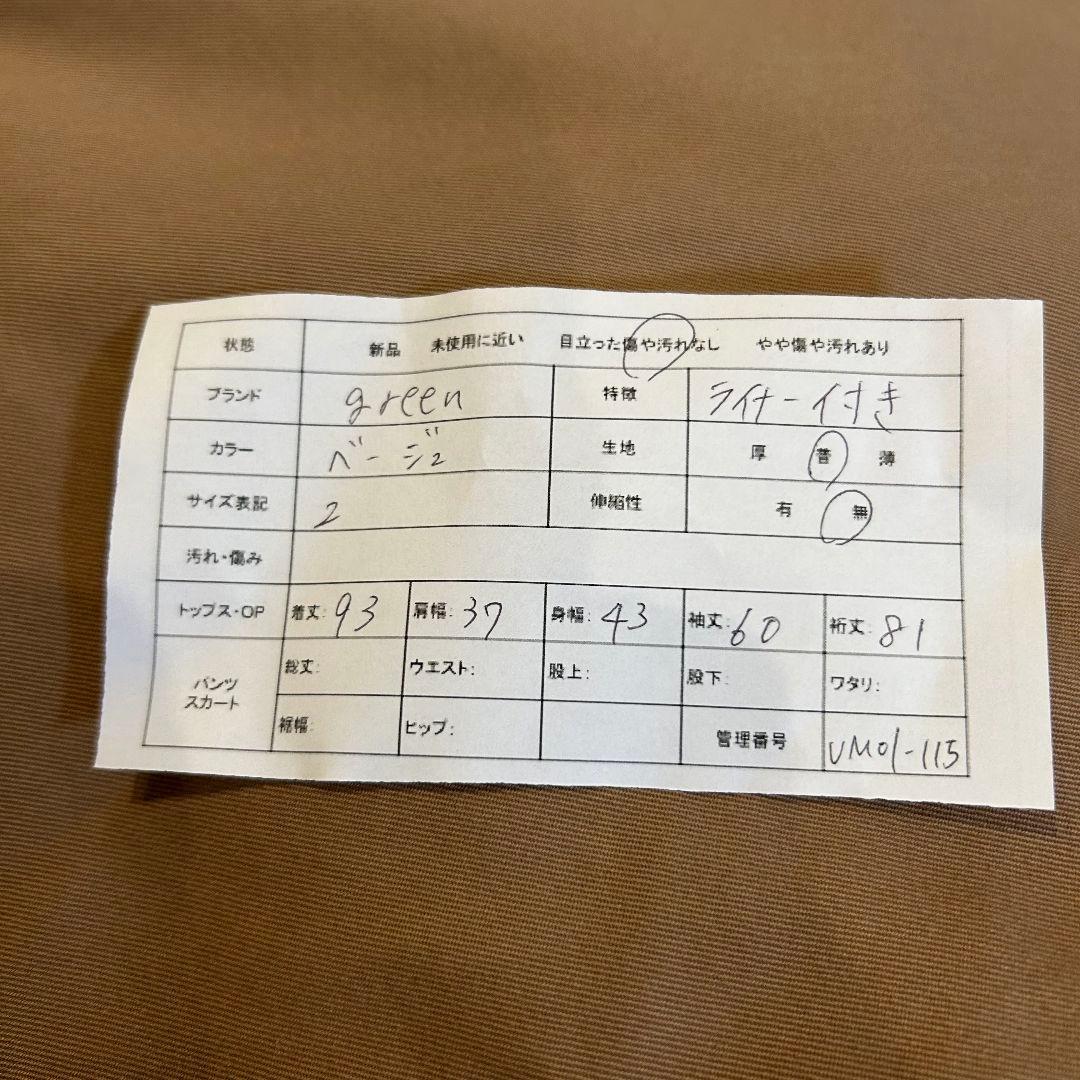 状態 新品 未使用に近い 目立った傷や汚れなし やや傷や汚れあり
ブランド green 特徴 ライナー付き
カラー ベージュ 生地 厚 普 薄
サイズ表記 2 伸縮性 有 無
汚れ・傷み
トップス・OP 着丈: 93 肩幅: 37 身幅: 43 袖丈: 60 裄丈: 81
パンツ スカート
総丈: ウエスト: 股上: 股下: ワタリ:
裾幅: ヒップ: 管理番号 UM01-115